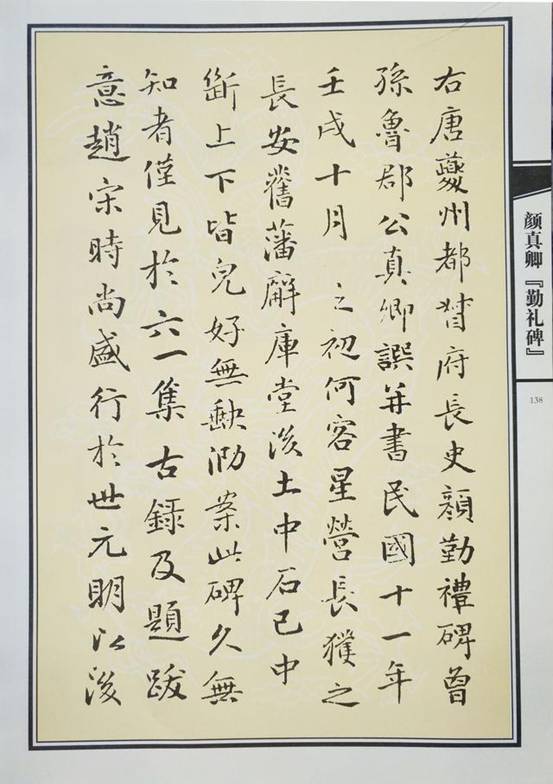 右唐夔州都督府長史顏勤禮碑曾
孫魯郡公真卿譔并書民國十一年
壬戌十月之初何客星營長獲之
長安舊藩廨庫堂後土中石已中
斷上下皆完好無缺泐案此碑久無
知者僅見於六一集古錄及題跋
意趙宋時尚盛行於世元明以後
颜真卿『勤礼碑』
138